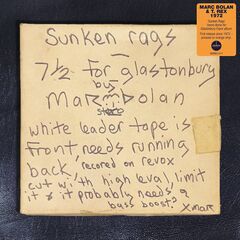 Sunken rags
7½ for glastonbury
by
Marc Bolan
stereo
white leader tape is
front needs running
back, recored on revox
cut with high leval, limit
it & it probably needs a
bass boost? X marc
MARC BOLAN
& T. REX
1972
Sunken Rags